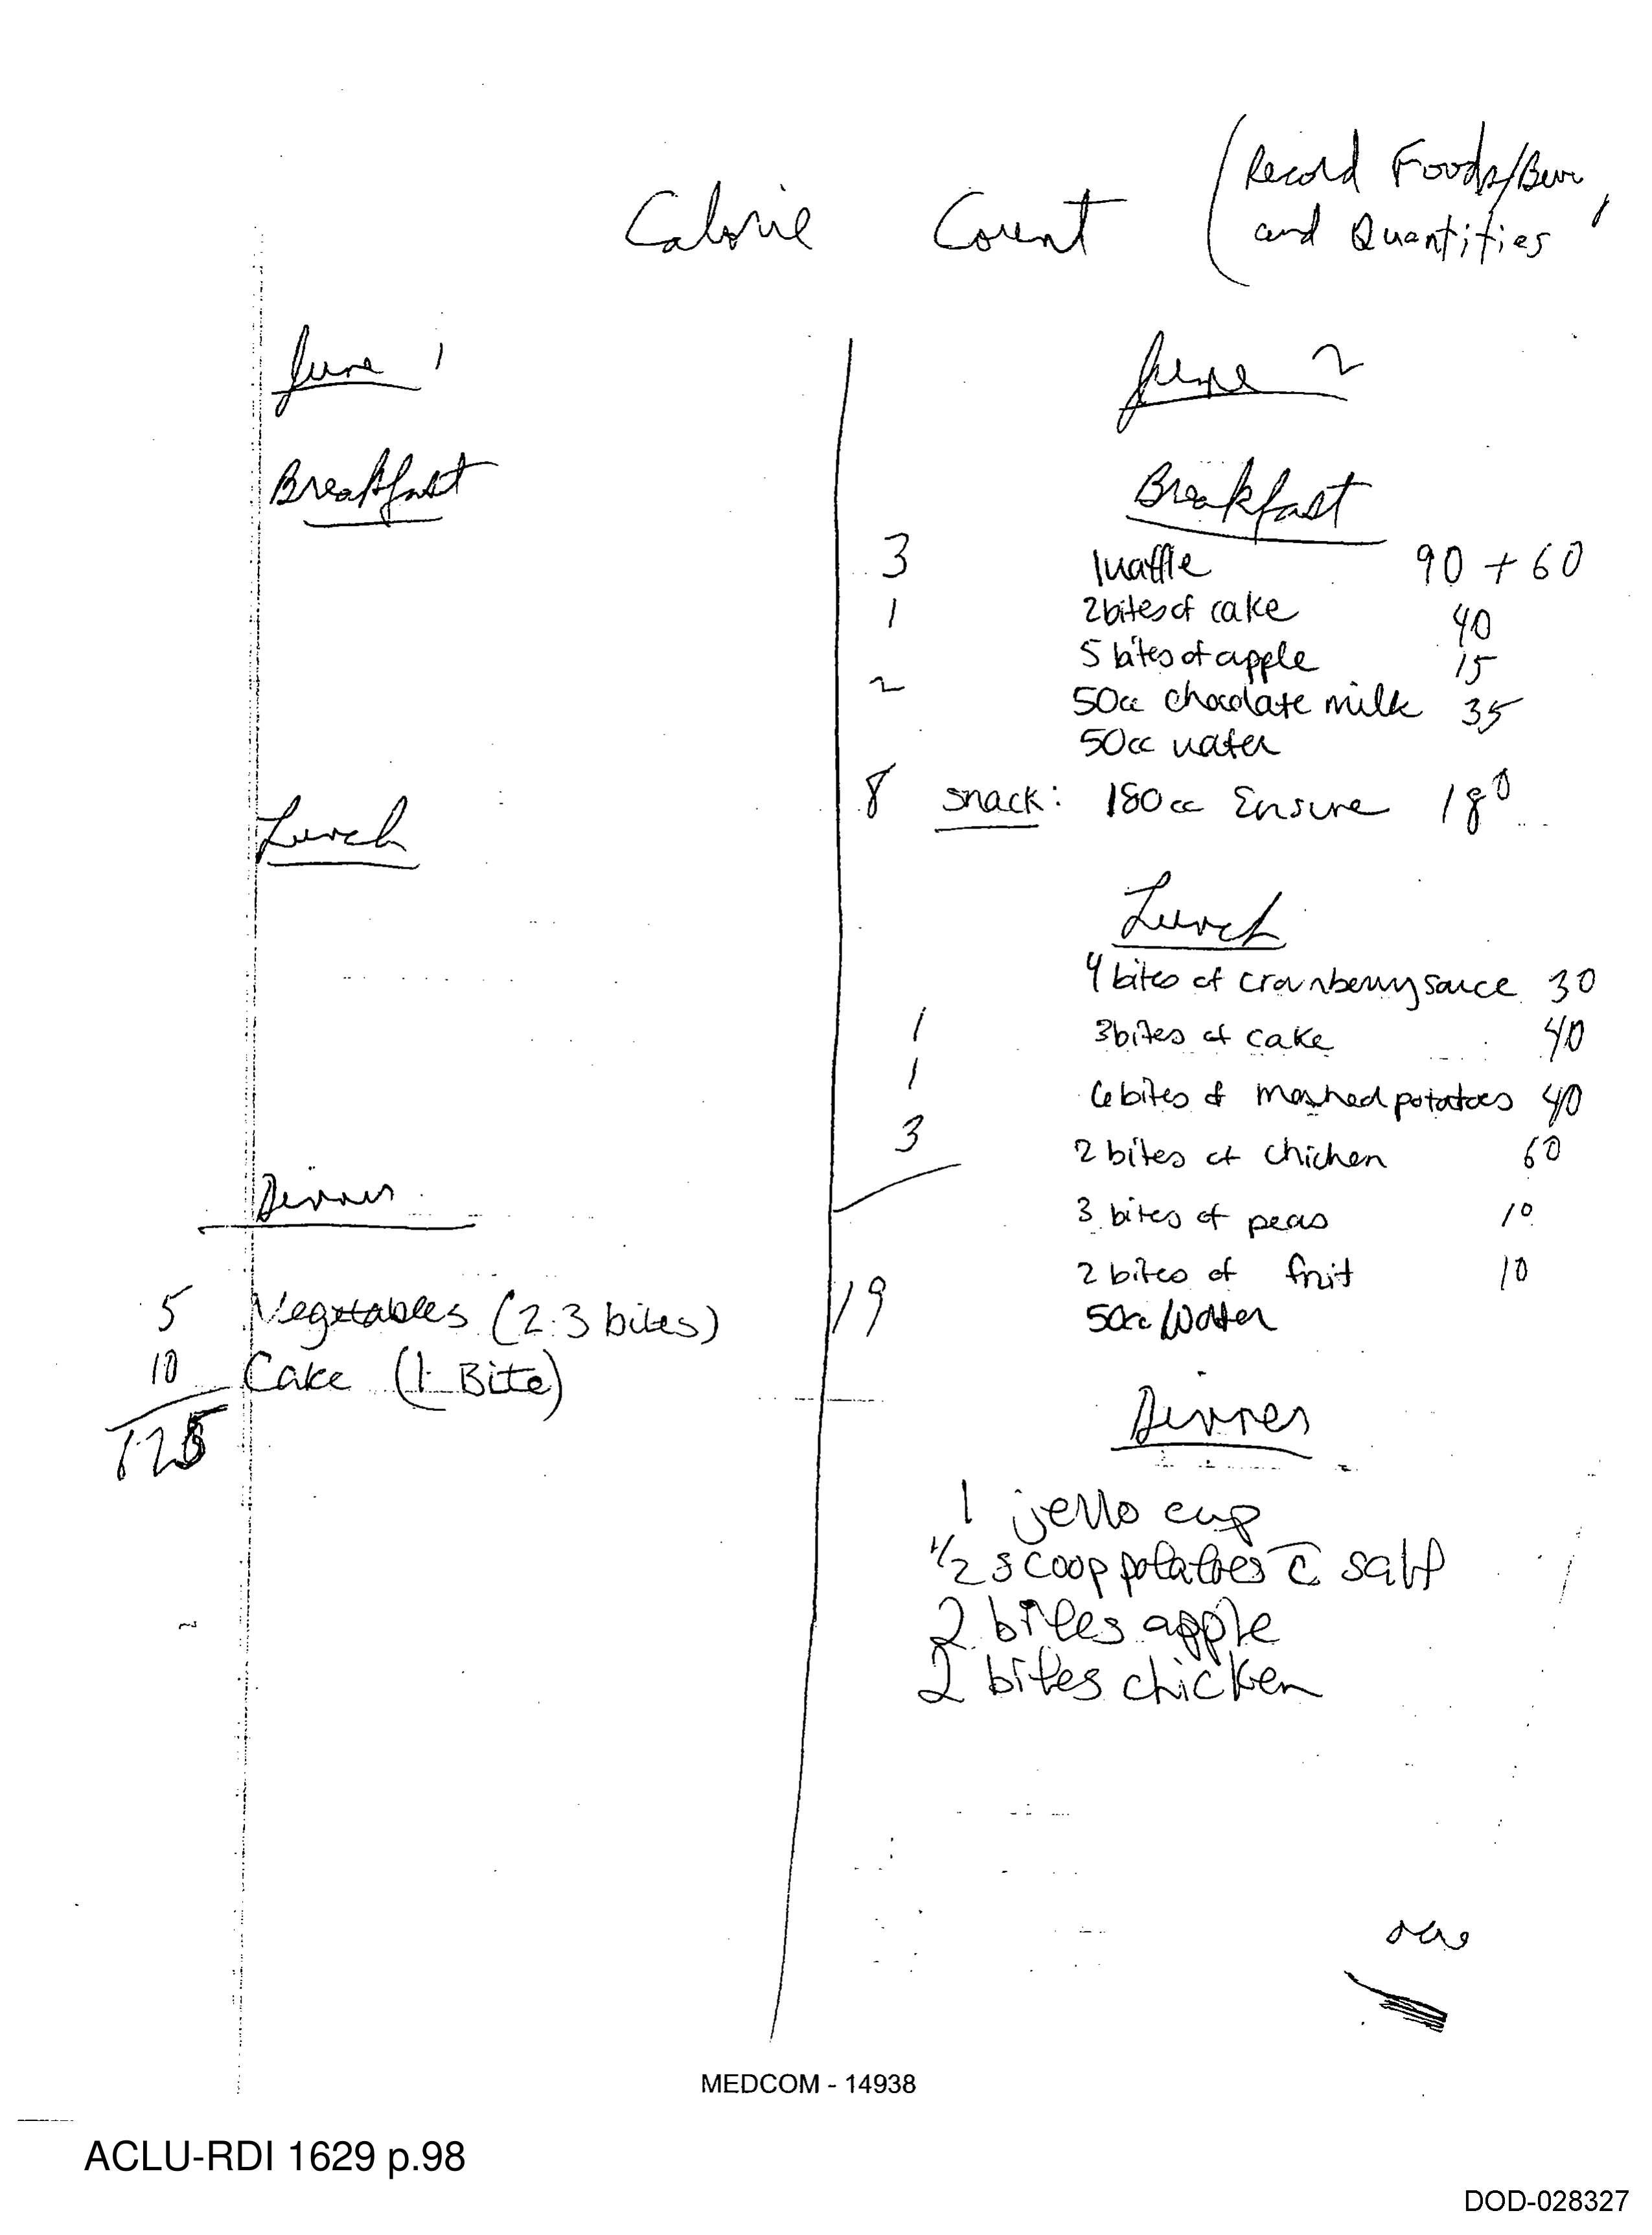 Calorie Count (Record Foods/Bev,
and Quantities
June 1
Breakfast
Lunch
Dinner
5 Vegetables (2-3 bites)
10 Cake (1 Bite)
June 2
Breakfast
3 1 waffle 90 + 60
1 2 bites of cake 40
5 bites of apple 15
2 50cc chocolate milk 35
50cc water
8 snack: 180cc Ensure 180
Lunch
4 bites of cranberry sauce 30
1 3 bites of cake 40
1 6 bites of mashed potatoes 40
3 2 bites of chicken 60
3 bites of peas 10
2 bites of fruit 10
19 50cc Water
Dinner
1 jello cup
1/2 scoop potatoes c̄ salt
2 bites apple
2 bites chicken
MEDCOM - 14938
ACLU-RDI 1629 p.98
DOD-028327